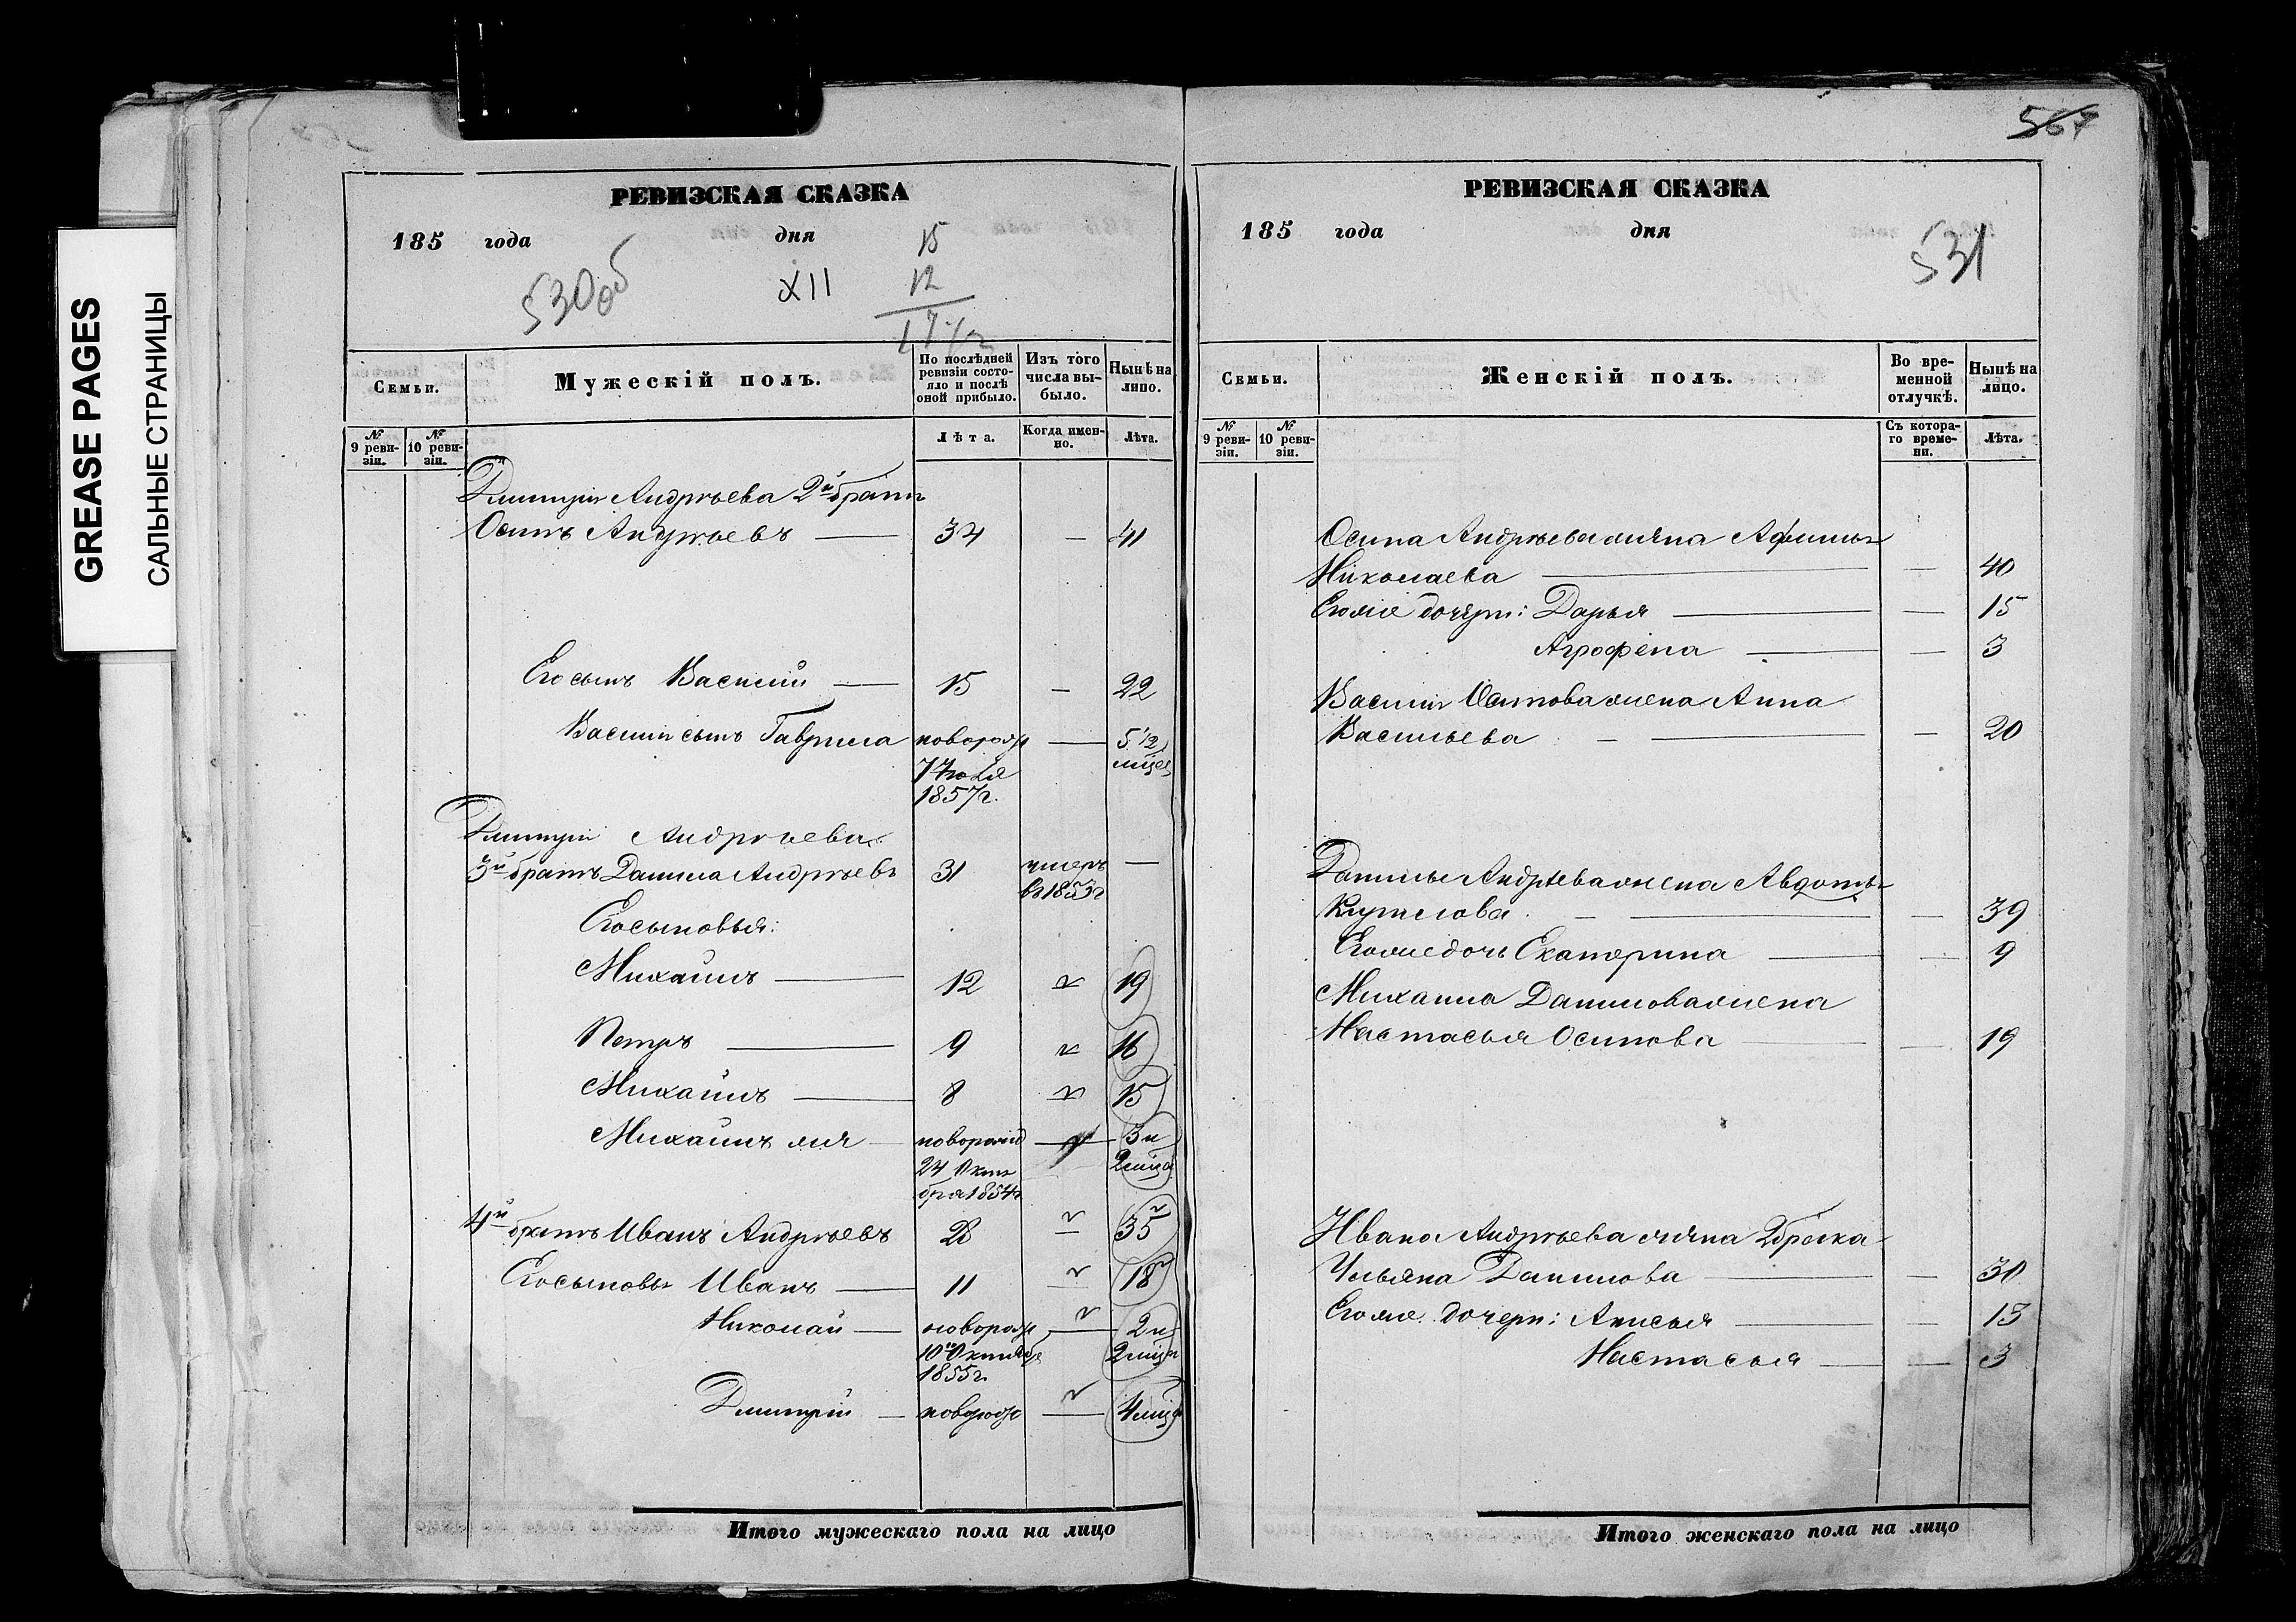 GREASE PAGES
САЛЬНЫЕ СТРАНИЦЫ
РЕВИЗСКАЯ СКАЗКА
185 года дня
530об
XII
15
12
Семьи.
Мужескій полъ.
По послѣдней ревизіи состояло и послѣ оной прибыло.
Изъ того числа выбыло.
Нынѣ на лицо.
№ 9 ревизіи.
№ 10 ревизіи.
Лѣта.
Когда именно.
Лѣта.
Дмитрія Андреева 2й братъ
Осипъ Андреевъ — 34 — 41
Его сынъ Василій — 15 — 22
Василія сынъ Гаврила новорож — 5 1/2 мцев
7 Июля
1857 г.
Дмитрія Андреева
3й братъ Данила Андреевъ 31 умеръ —
въ 1853 г
Его сыновья:
Михайлъ — 12 19
Петръ — 9 16
Михайлъ — 8 15
Михайлъ — новорожд — 3 и
24 Октя 2 мца
бря 1854 г
4й братъ Иванъ Андреевъ 28 — 35
Его сыновья Иванъ — 11 — 18
Николай — новорож — 2 и
10 Октября 2 мца
1855 г.
Дмитрій — новорож — 4 мца
Итого мужескаго пола на лицо
567
РЕВИЗСКАЯ СКАЗКА
185 года дня
531
Семьи.
Женскій полъ.
Во временной отлучкѣ.
Нынѣ на лицо.
№ 9 ревизіи.
№ 10 ревизіи.
Съ котораго времени.
Лѣта.
Осипа Андреева жена Афимья
Николаева — — 40
Его же дочери: Дарья — — 15
Агрофена — — 3
Василія Осипова жена Анна
Васильева — — 20
Данилы Андреева жена Авдотья
Кирилова — — 39
Его же дочь Екатерина — — 9
Михаила Данилова жена
Настасья Осипова — — 19
Ивана Андреева жена 2 брака
Ульяна Данилова — — 30
Его же дочери: Анисья — — 13
Настасья — — 3
Итого женскаго пола на лицо